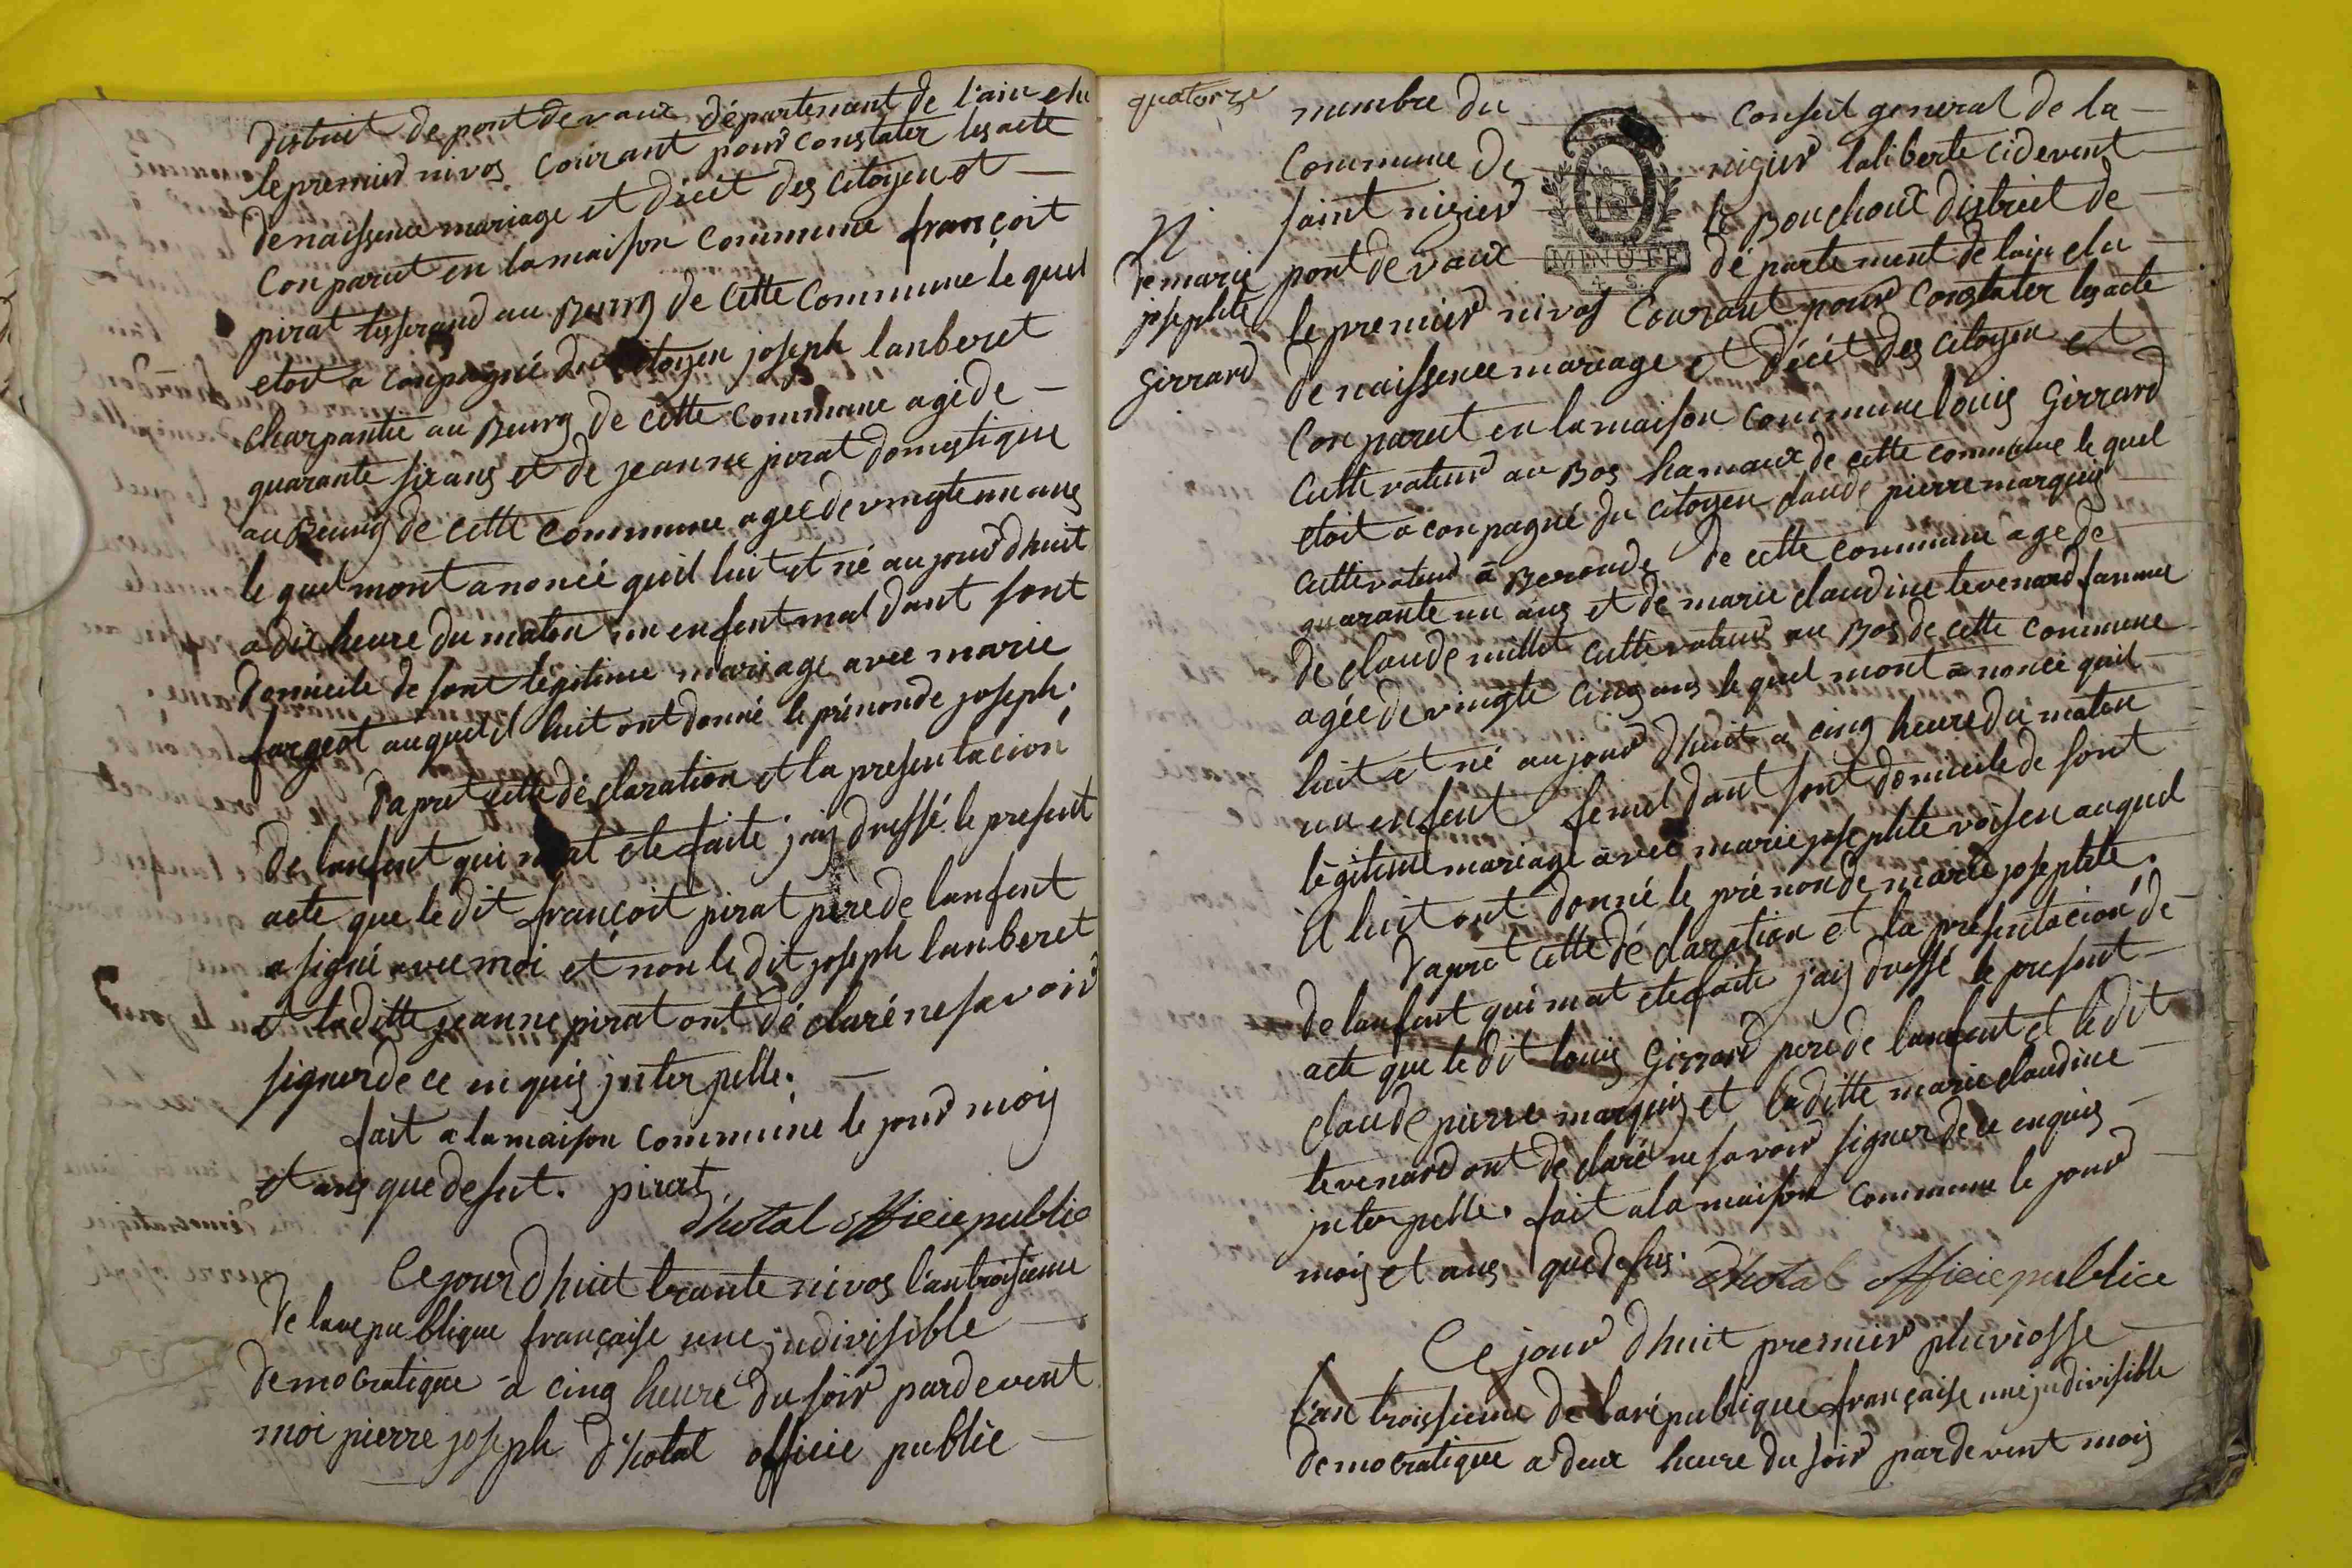 district de pont de vaux département de l'ain elu
le premier nivos courant pour constater les acte
de naissence mariage et décét des citoyen et
Conparut en la maison commune françoit
pirat tisserand au Bourg de cette commune le quel
etoit a conpagné du citoyen joseph lanberet
charpantie au Bourg de cette commune agé de
quarante six ans et de jeanne pirat domestique
au Bourg de cette commune agée de vingte un ans
le quel mont anoncé quil luit et né aujourd'huit
a dix heure du maten un enfent mal dant sont
domicile de sont légitime mariage avec marie
fargeot auquel il luit ont donné le prénon de joseph.
d'apret cette déclaration et la presentacion
de lanfent qui mat ete faite jais dressé le present
acte que le dit françoit pirat père de lanfent
a signé avec moi et non le dit joseph lanberet
et laditte jeanne pirat ont déclaré ne savoir
signer de ce enquis jnterpelle.
fait a la maison commune le jour mois
et ans que desut. pirat
d'hotal officie public
Ce jour d'huit trante nivos l'an troisieme
de la republique française une jndivisible
democratique a cinq heure du soir pardevent
moi pierre joseph d'hotal officie public
quatorze
N.
de marie
josephte
Girrard
menbre du conseil general de la
commune de nizier laliberte cidevent
saint nizier le Bouchoux district de
pont de vaux département de lain elu
le premier nivos courant pour constater les acte
de naissence mariage et décét des citoyen et
Conparut en la maison commune louis Girrard
cultevateur au Bos hamaux de cette commune le quel
etoit a conpagné du citoyen claude pierre marquis
cultevateur a de cette commune age de
quarante un ans et de marie claudine tevenard famme
de claude millet cultevateur au Bos de cette commune
agée de vingte cinq ans le quel mont anoncé quil
luit et né aujourd'huit a cinq heure du maten
un enfent femel dant sont domicile de sont
légitime mariage avec marie josephte voisen auquel
il luit ont donné le prénon de marie josephte.
d'apret cette déclaration et la présentacion de
de lanfent qui mat ete faite jais dressé le present
acte que le dit louis Girrard père de lanfent et le dit
claude pierre marquis et laditte marie claudine
tevenard ont déclaré ne savoir signer de ce enquis
jnterpelle. fait a la maison commune le jour
mois et ans que desus. d'hotal officie publice
MINUTE
4 S
Ce jour d'huit premier pluviosse
l'an troissieme de la république française une jndivisible
democratique a deux heure du soir pardevent mois